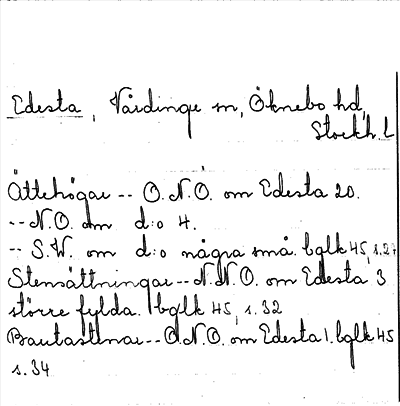 Edesta, Vårdinge sn, Öknebo hd,
Stockh. L
Ättehögar -- O.N.O. om Edesta 20.
-- N.O. om d:o 4.
-- S.W. om d:o några små. bglk 45, s.27
Stensättningar -- N.N.O. om Edesta 3
större fylda. bglk 45, s.32
Bautastenar -- O.N.O. om Edesta 1. bglk 45
s.34